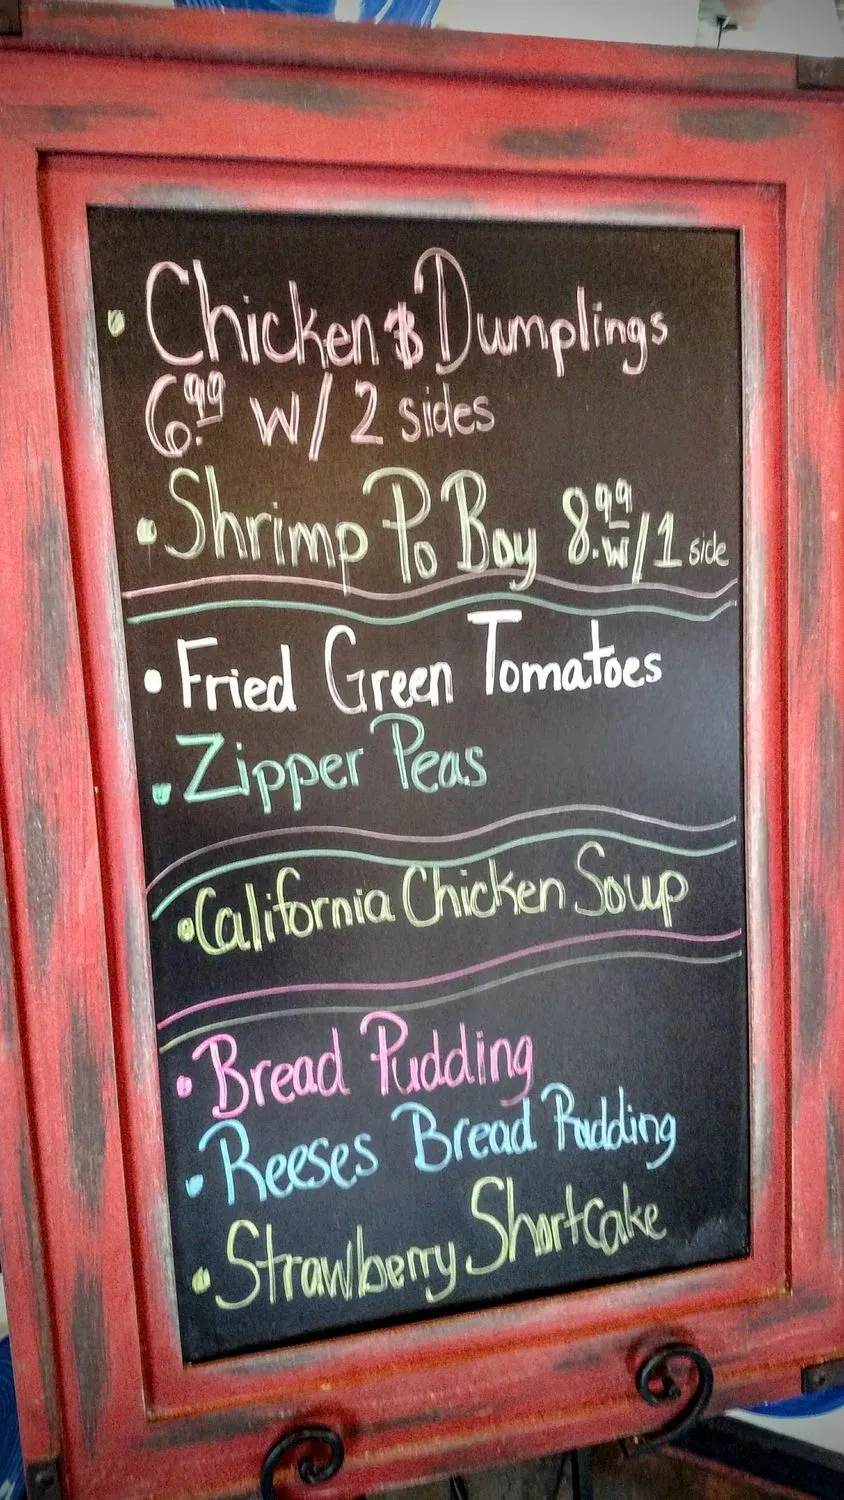 • Chicken & Dumplings
6.99 w/ 2 sides
• Shrimp Po Boy 8.99 w/1 side
• Fried Green Tomatoes
• Zipper Peas
• California Chicken Soup
• Bread Pudding
• Reeses Bread Pudding
• Strawberry Shortcake